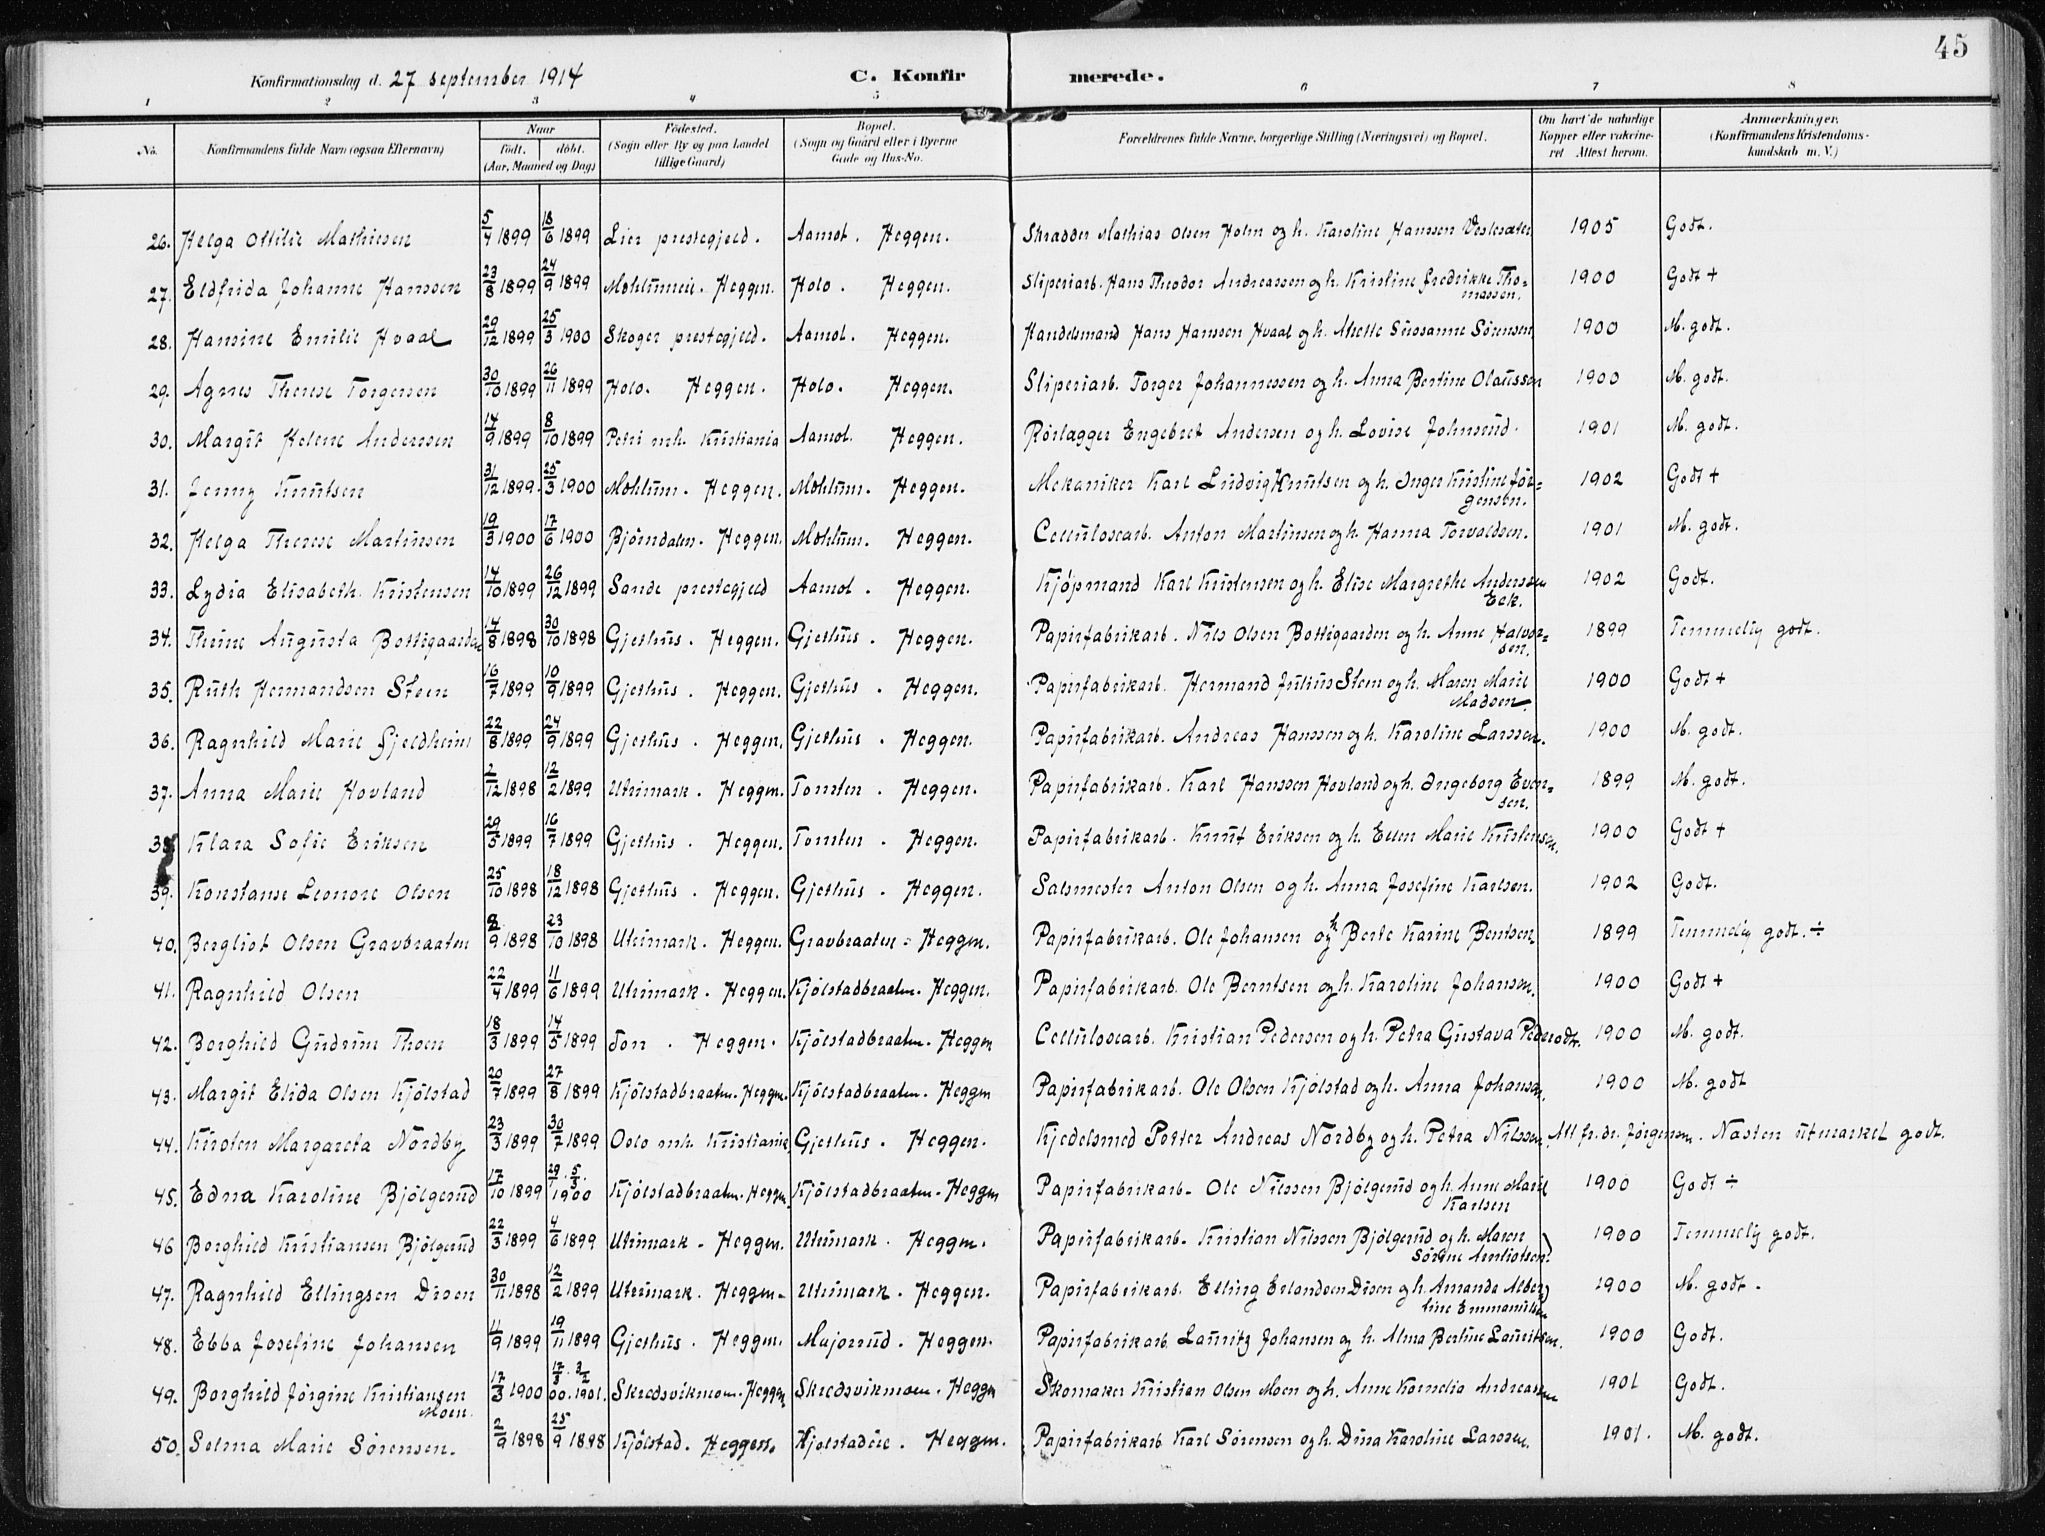 45
Konfirmationsdag d. 27 september 1914 C. Konfirmerede.
1 2 3 4 5 6 7 8
No. Konfirmandens fulde Navn (ogsaa Efternavn) Naar født. døbt. (Aar, Maaned og Dag) Fødested. (Sogn eller By og paa Landet tillige Gaard) Bopæl. (Sogn og Gaard eller i Byerne Gade og Hus-No. Forældrenes fulde Navne, borgerlige Stilling (Næringsvei) og Bopæl. Om havt de naturlige Kopper eller vakcineret Attest herom. Anmærkninger. (Konfirmandens Kristendomskundskab m. V.)
26. Helga Ottilie Mathiesen 5/4 1899 18/6 1899 Lier prestegjeld. Aamot. Heggen. Skrædder Mathias Olsen Holm og h. Karoline Hanssen Vestesæter 1905 Godt.
27. Eldfrida Johanne Hanssen 23/8 1899 24/9 1899 Møhlumeie. Heggen. Holo. Heggen. Sliperiarb. Hans Theodor Andreassen og h. Kristine Fredrikke Thomassen. 1900 Godt +
28. Hansine Emilie Hvaal 29/12 1899 25/3 1900 Skoger prestegjeld. Aamot. Heggen. Handelsmand Hans Hanssen Hvaal og h. Mette Sussanne Sørensen 1900 M. godt.
29. Agnes Therese Torgersen 30/10 1899 26/11 1899 Holo. Heggen. Holo. Heggen. Sliperiarb. Torger Johannessen og h. Anna Bertine Olaussen 1900 M. godt.
30. Margit Helene Anderssen 14/9 1899 8/10 1899 Petri mh. Kristiania Aamot. Heggen. Rørlægger Engebret Andersen og h. Lovise Johnsrud. 1901 M. godt.
31. Jenny Knutsen 31/12 1899. 25/3 1900 Møhlum. Heggen. Møhlum. Heggen. Mekaniker Karl Ludvig Knutsen og h. Inger Kristine Jørgensen. 1902 Godt +
32. Helga Therese Martinsen 19/3 1900 17/6 1900 Bjørndalen. Heggen. Møhlum. Heggen. Cellulosearb. Anton Martinsen og h. Hanna Torvaldsen. 1901 M. godt.
33. Lydia Elisabeth Kristensen 14/10 1899 26/12 1899 Sande prestegjeld Aamot. Heggen. Kjøpmand Karl Kristensen og h. Elise Margrethe Anderssen Eek. 1902 Godt.
34. Thrine Augusta Bottegaarden 14/8 1898 30/10 1898 Gjethus. Heggen. Gjethus. Heggen. Papirfabrikarb. Nils Olsen Bottegaarden og h. Anne Halvorsen. 1899 Temmelig godt.
35. Ruth Hermandsen Steen 16/7 1899 10/9 1899 Gjethus. Heggen. Gjethus. Heggen. Papirfabrikarb. Hermand Julius Steen og h. Maren Marie Madsen. 1900 Godt +
36. Ragnhild Marie Gjeldheim 22/8 1899 24/9 1899 Gjethus. Heggen. Gjethus. Heggen. Papirfabrikarb. Andreas Hanssen og h. Karoline Larssen. 1900 M. godt.
37. Anna Marie Hovland 2/12 1898 12/2 1899 Utrimark. Heggen. Tonsten. Heggen. Papirfabrikarb. Karl Hanssen Hovland og h. Ingeborg Evensen. 1899 M. godt.
38. Klara Sofie Eriksen 29/5 1899 16/7 1899 Gjethus. Heggen. Tonsten. Heggen. Papirfabrikarb. Knut Eriksen og h. Ellen Marie Kristensen. 1900 Godt +
39. Konstanse Leonore Olsen 25/10 1898 18/12 1898 Gjethus. Heggen. Gjethus. Heggen. Salsmester Anton Olsen og h. Anna Josefine Karlsen. 1902 Godt.
40. Bergliot Olsen Gravbraaten 2/9 1898 23/10 1898 Utrimark. Heggen. Gravbraaten - Heggen. Papirfabrikarb. Ole Johansen og h Berte Karine Berntsen 1899 Temmelig godt. ÷
41. Ragnhild Olsen 22/4 1899 11/6 1899 Utrimark. Heggen. Kjølstadbraaten. Heggen. Papirfabrikarb. Ole Berntsen og h. Karoline Johansen. 1900 Godt +
42. Borghild Gudrun Thoen 18/3 1899 14/5 1899 Ton. Heggen. Kjølstadbraaten. Heggen Cellulosearb. Kristian Pedersen og h. Petra Gustava Pedersdt. 1900 M. godt.
43. Margit Elida Olsen Kjølstad 20/7 1899 27/8 1899 Kjølstadbraaten. Heggen. Kjølstadbraaten. Heggen Papirfabrikarb. Ole Olsen Kjølstad og h. Anna Johansen. 1900 M. godt
44. Kirsten Margareta Nordby 23/3 1899 30/7 1899 Oslo mh. Kristiania Gjethus. Heggen. Kjedelsmed Petter Andreas Nordby og h. Petra Nilssen. Att. fr. dr. Jørgensen. Næsten utmærket godt.
45. Edna Karoline Bjølgerud 17/10 1899 29/1. 5/3. 1900 Kjølstadbraaten. Heggen. Kjølstadbraaten. Heggen Papirfabrikarb. Ole Nilssen Bjølgerud og h. Anne Marie Karlsen 1900 Godt ÷
46 Borghild Kristiansen Bjølgerud 22/3 1899 4/6 1899 Utrimark. Heggen. Utrimark. Heggen. Papirfabrikarb. Kristian Nilssen Bjølgerud og h. Maren Sørine Arntiotsen. 1900 Temmelig godt.
47. Ragnhild Ellingsen Disen 30/11 1898 12/2 1899 Utrimark. Heggen. Utrimark. Heggen. Papirfabrikarb. Elling Erlandsen Disen og h. Amanda Albertine Emmanuelsen 1900 M. godt.
48. Ebba Josefine Johansen 11/9 1899 19/11 1899 Gjethus. Heggen. Majorrud. Heggen. Papirfabrikarb. Lauritz Johansen og h. Alma Bertine Lauritsen. 1900 Godt.
49. Borghild Jørgine Kristiansen Moen. 17/3 1900 17/3. 3/2 00. 1901. Skredsvikmoen. Heggen Skredsvikmoen. Heggen Skomaker Kristian Olsen Moen og h. Anne Kornelia Andreassen 1901 Godt.
50. Selma Marie Sørensen. 2/9 1898 25/9 1898 Kjølstad. Heggen. Kjølstadeie. Heggen. Papirfabrikarb. Karl Sørensen og h. Dina Karoline Larssen. 1901. M. godt.